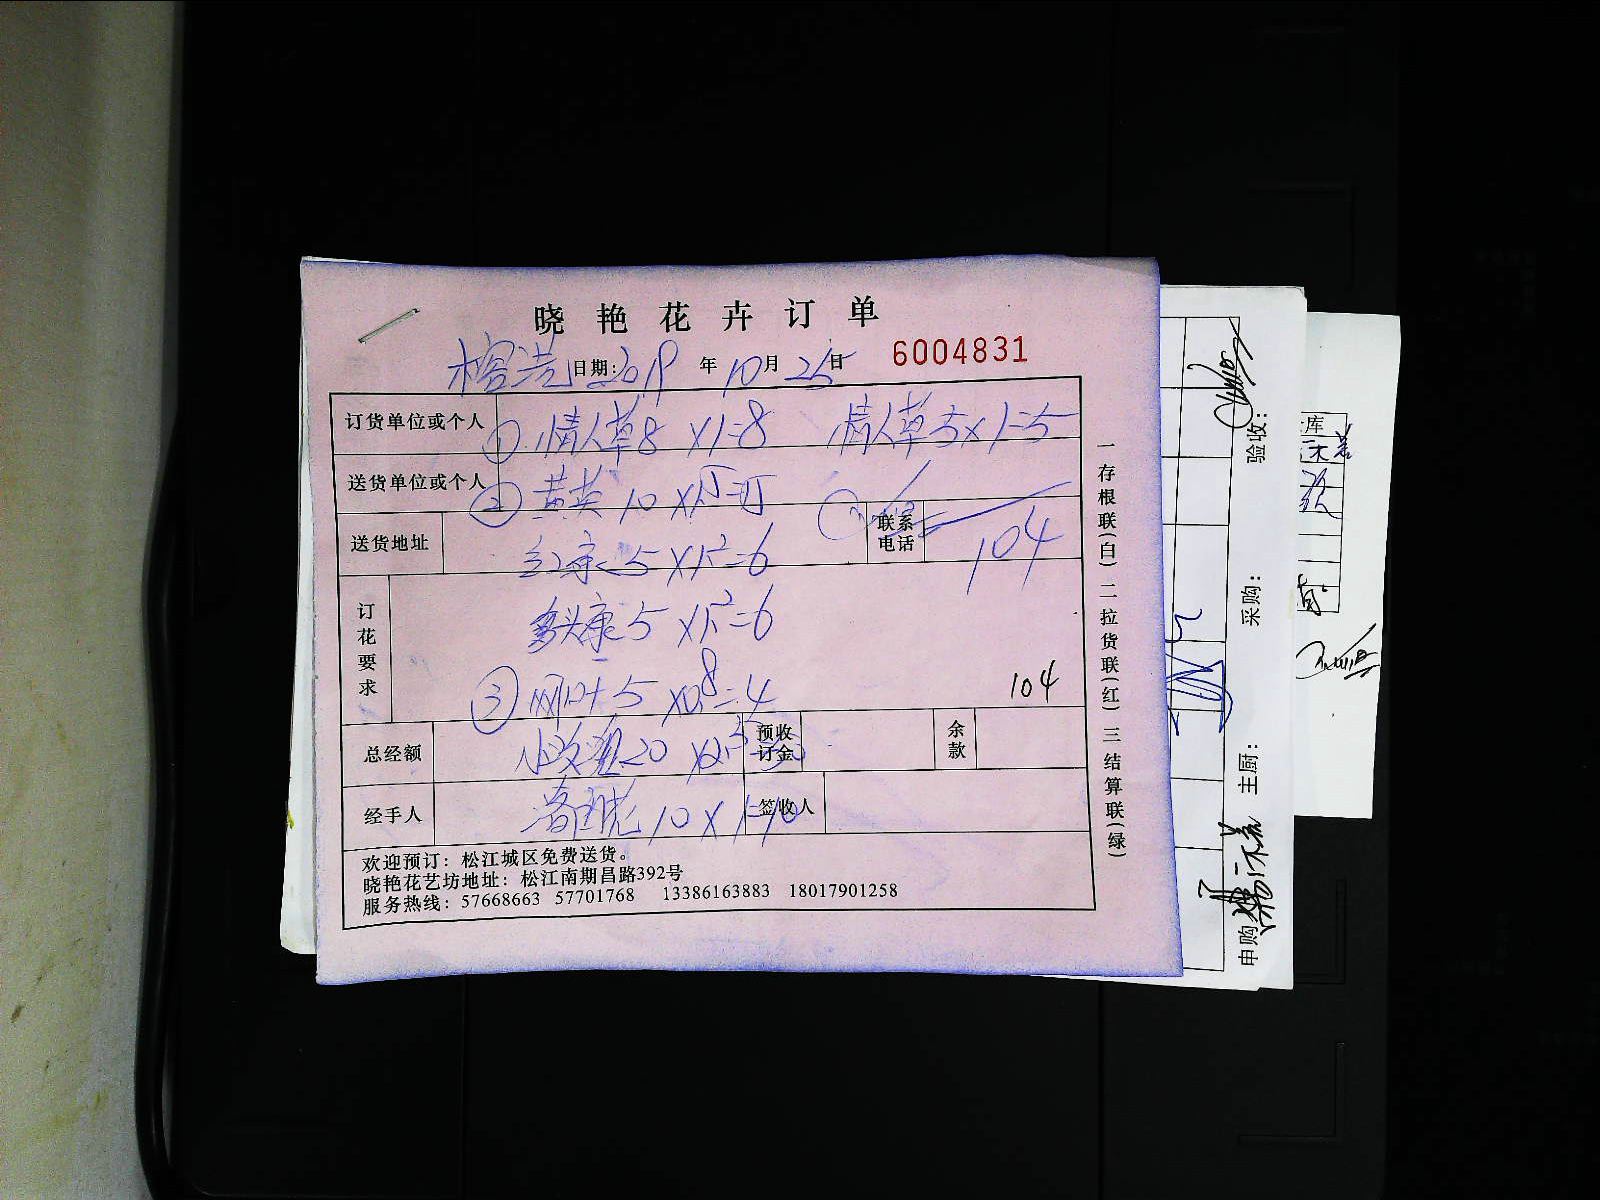 晓艳花卉订单
日期: 2019 年 10 月 25 日 6004831
订货单位或个人 ① 情人草 8 ×1=8 情人草 5×1=5
送货单位或个人 ② 黄英 10 ×1.5=15
送货地址 红康 5 ×1.2=6 联系电话 104
订花要求 多头康 5 ×1.2=6
③ 5 ×0.8=4 104
总经额 20 预收订金 余款
经手人 10 × 1=10 签收人
欢迎预订：松江城区免费送货。
晓艳花艺坊地址：松江南期昌路392号
服务热线：57668663 57701768 13386163883 18017901258
一存根联(白) 二拉货联(红) 三结算联(绿)
验收:
采购:
主厨:
申购
库